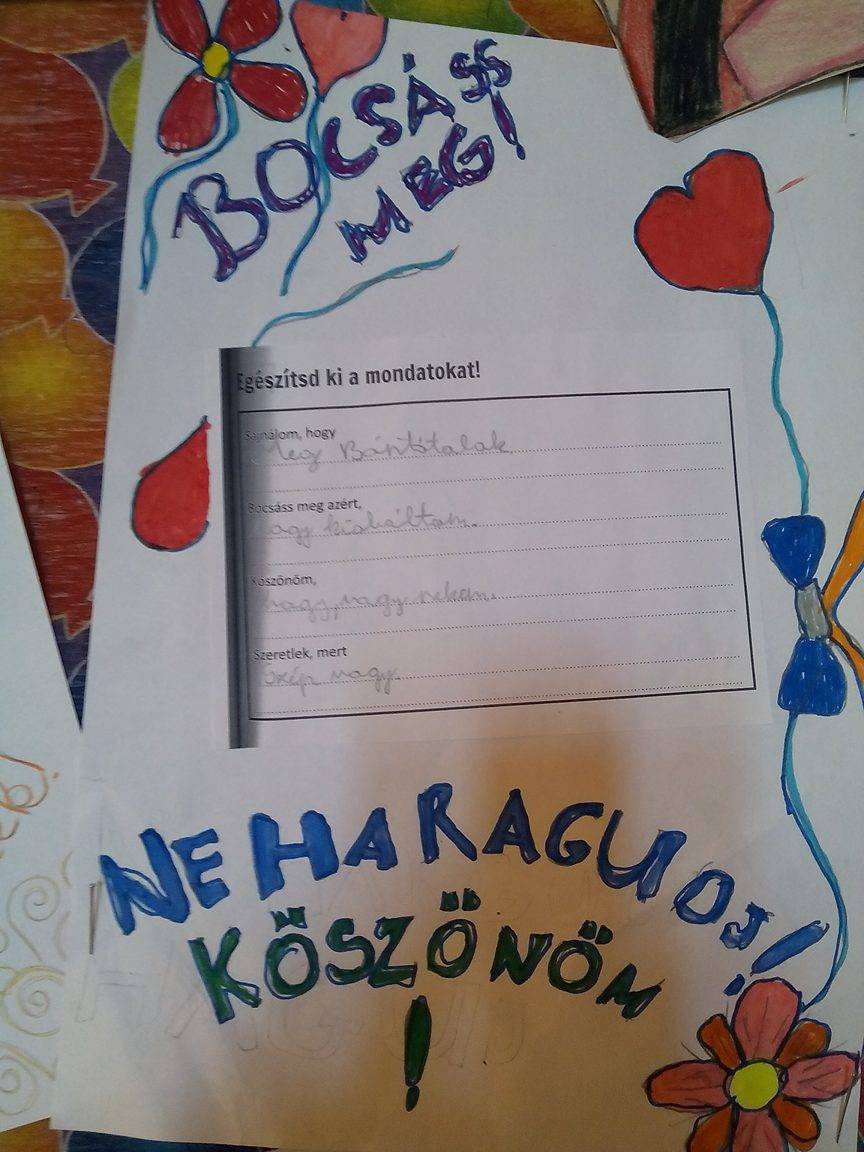 BOCSÁSS
MEG!
Egészítsd ki a mondatokat!
Sajnálom, hogy
Meg Bántótalak
Bocsáss meg azért,
ogy kiabáltam.
Köszönöm,
hogy vagy nekem.
Szeretlek, mert
Szép vagy.
NE HARAGUDJ!
KÖSZÖNÖM
!